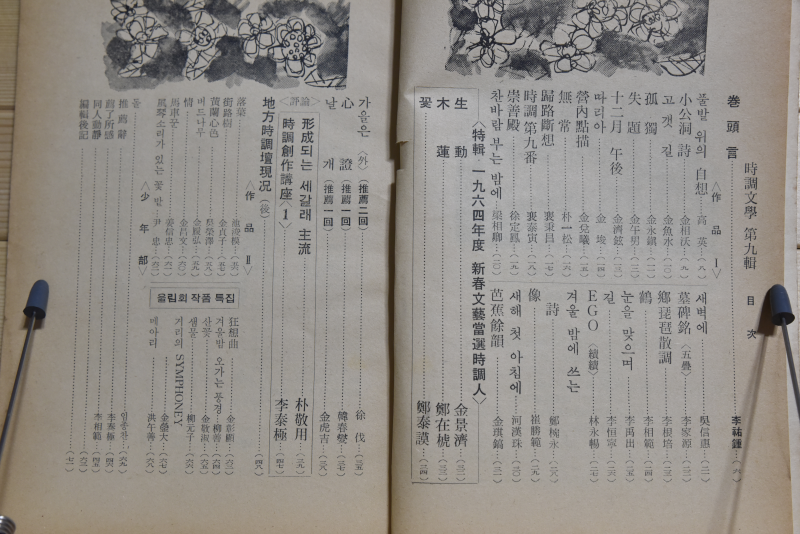 時調文學 第九輯 目次
卷頭言 李祐鍾 (六)
〈作品 Ⅰ〉
풀밭 위의 自想 高英 (八)
小公洞 詩 金相沃 (九)
고갯길 金魚水 (一〇)
孤獨 金永鎭 (一一)
失題 金午男 (一二)
十二月 午後 金濟鉉 (一三)
따리아 金埈 (一四)
營內點描 金兌曦 (一五)
無常 朴一松 (一六)
歸路斷想 裵秉昌 (一七)
時調 第九番 裵泰寅 (一八)
崇善殿 徐定鳳 (一九)
찬바람 부는 밤에 梁相卿 (二〇)
새벽에 吳信惠 (二一)
墓碑銘 〈五疊〉 李家源 (二二)
鄕琵琶散調 李根培 (二三)
鶴 李相範 (二四)
눈을 맞으며 李禹出 (二五)
길 李恒寧 (二六)
EGO 〈續續〉 林永暢 (二七)
겨울 밤에 쓰는 詩 鄭椀永 (二八)
像 崔勝範 (二九)
새해 첫 아침에 河漢珠 (三〇)
芭蕉餘韻 金琪鎬 (三一)
〈特輯 一九六四年度 新春文藝當選時調人〉
生動 金景濟 (三二)
木蓮 鄭在虎 (三三)
꽃 鄭泰謨 (三四)
가을은 〈外〉 (推薦二回) 徐伐 (三五)
心證 (推薦一回) 韓春燮 (三七)
날개 (推薦一回) 金虎吉 (三八)
〈評論〉 形成되는 세갈래 主流 朴敬用 (三九)
時調創作講座〈1〉 李泰極 (四七)
地方時調壇現況 (後) (四八)
〈作品 Ⅱ〉
落葉
街路樹 金貞子
黃蘭心色 蔡榮澤
버드나무 金履弘
情 金昌文
馬車꾼 姜信忠
風琴소리가 있는 꽃밭 尹忠
〈少年部〉
율림회 작품 특집
狂想曲 金彰顯
겨울밤
오가는 풍경 柳善
산꽃 金敬淑
샘물 柳元子
거리의 SYMPHONEY 金榮大
메아리 洪午善
돌
推薦辭 李泰極
薦了所感 李相範
同人動靜
編輯後記 (七一)